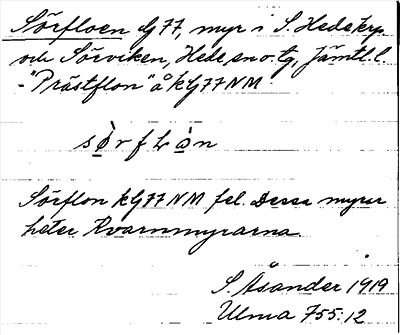 Sörfloen dG77, myr i S. Hedekrp
och Sörviken, Hede sn o. tg, Jämtl. l.
-"Prästflon" å kG77NM.
sòrflòn
Sörflon kG77NM fel. Dessa myrar
heter Kvarnmyrarna.
S. Åsander 1919
Ulma 755:12